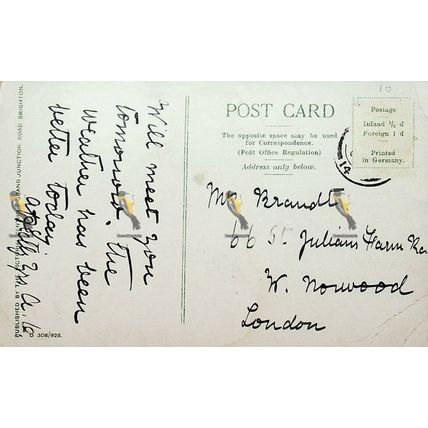 Will meet you
tomorrow. the
weather has been
better today.
POST CARD
The opposite space may be used
for Correspondence.
(Post Office Regulation)
Address only below.
Postage
Inland ½ d
Foreign 1 d
Printed
in Germany.
10
Brandt
66 St. Julians Farm
W. Norwood
London
PUBLISHED BY
JUNCTION ROAD BRIGHTON.
D 308/928.